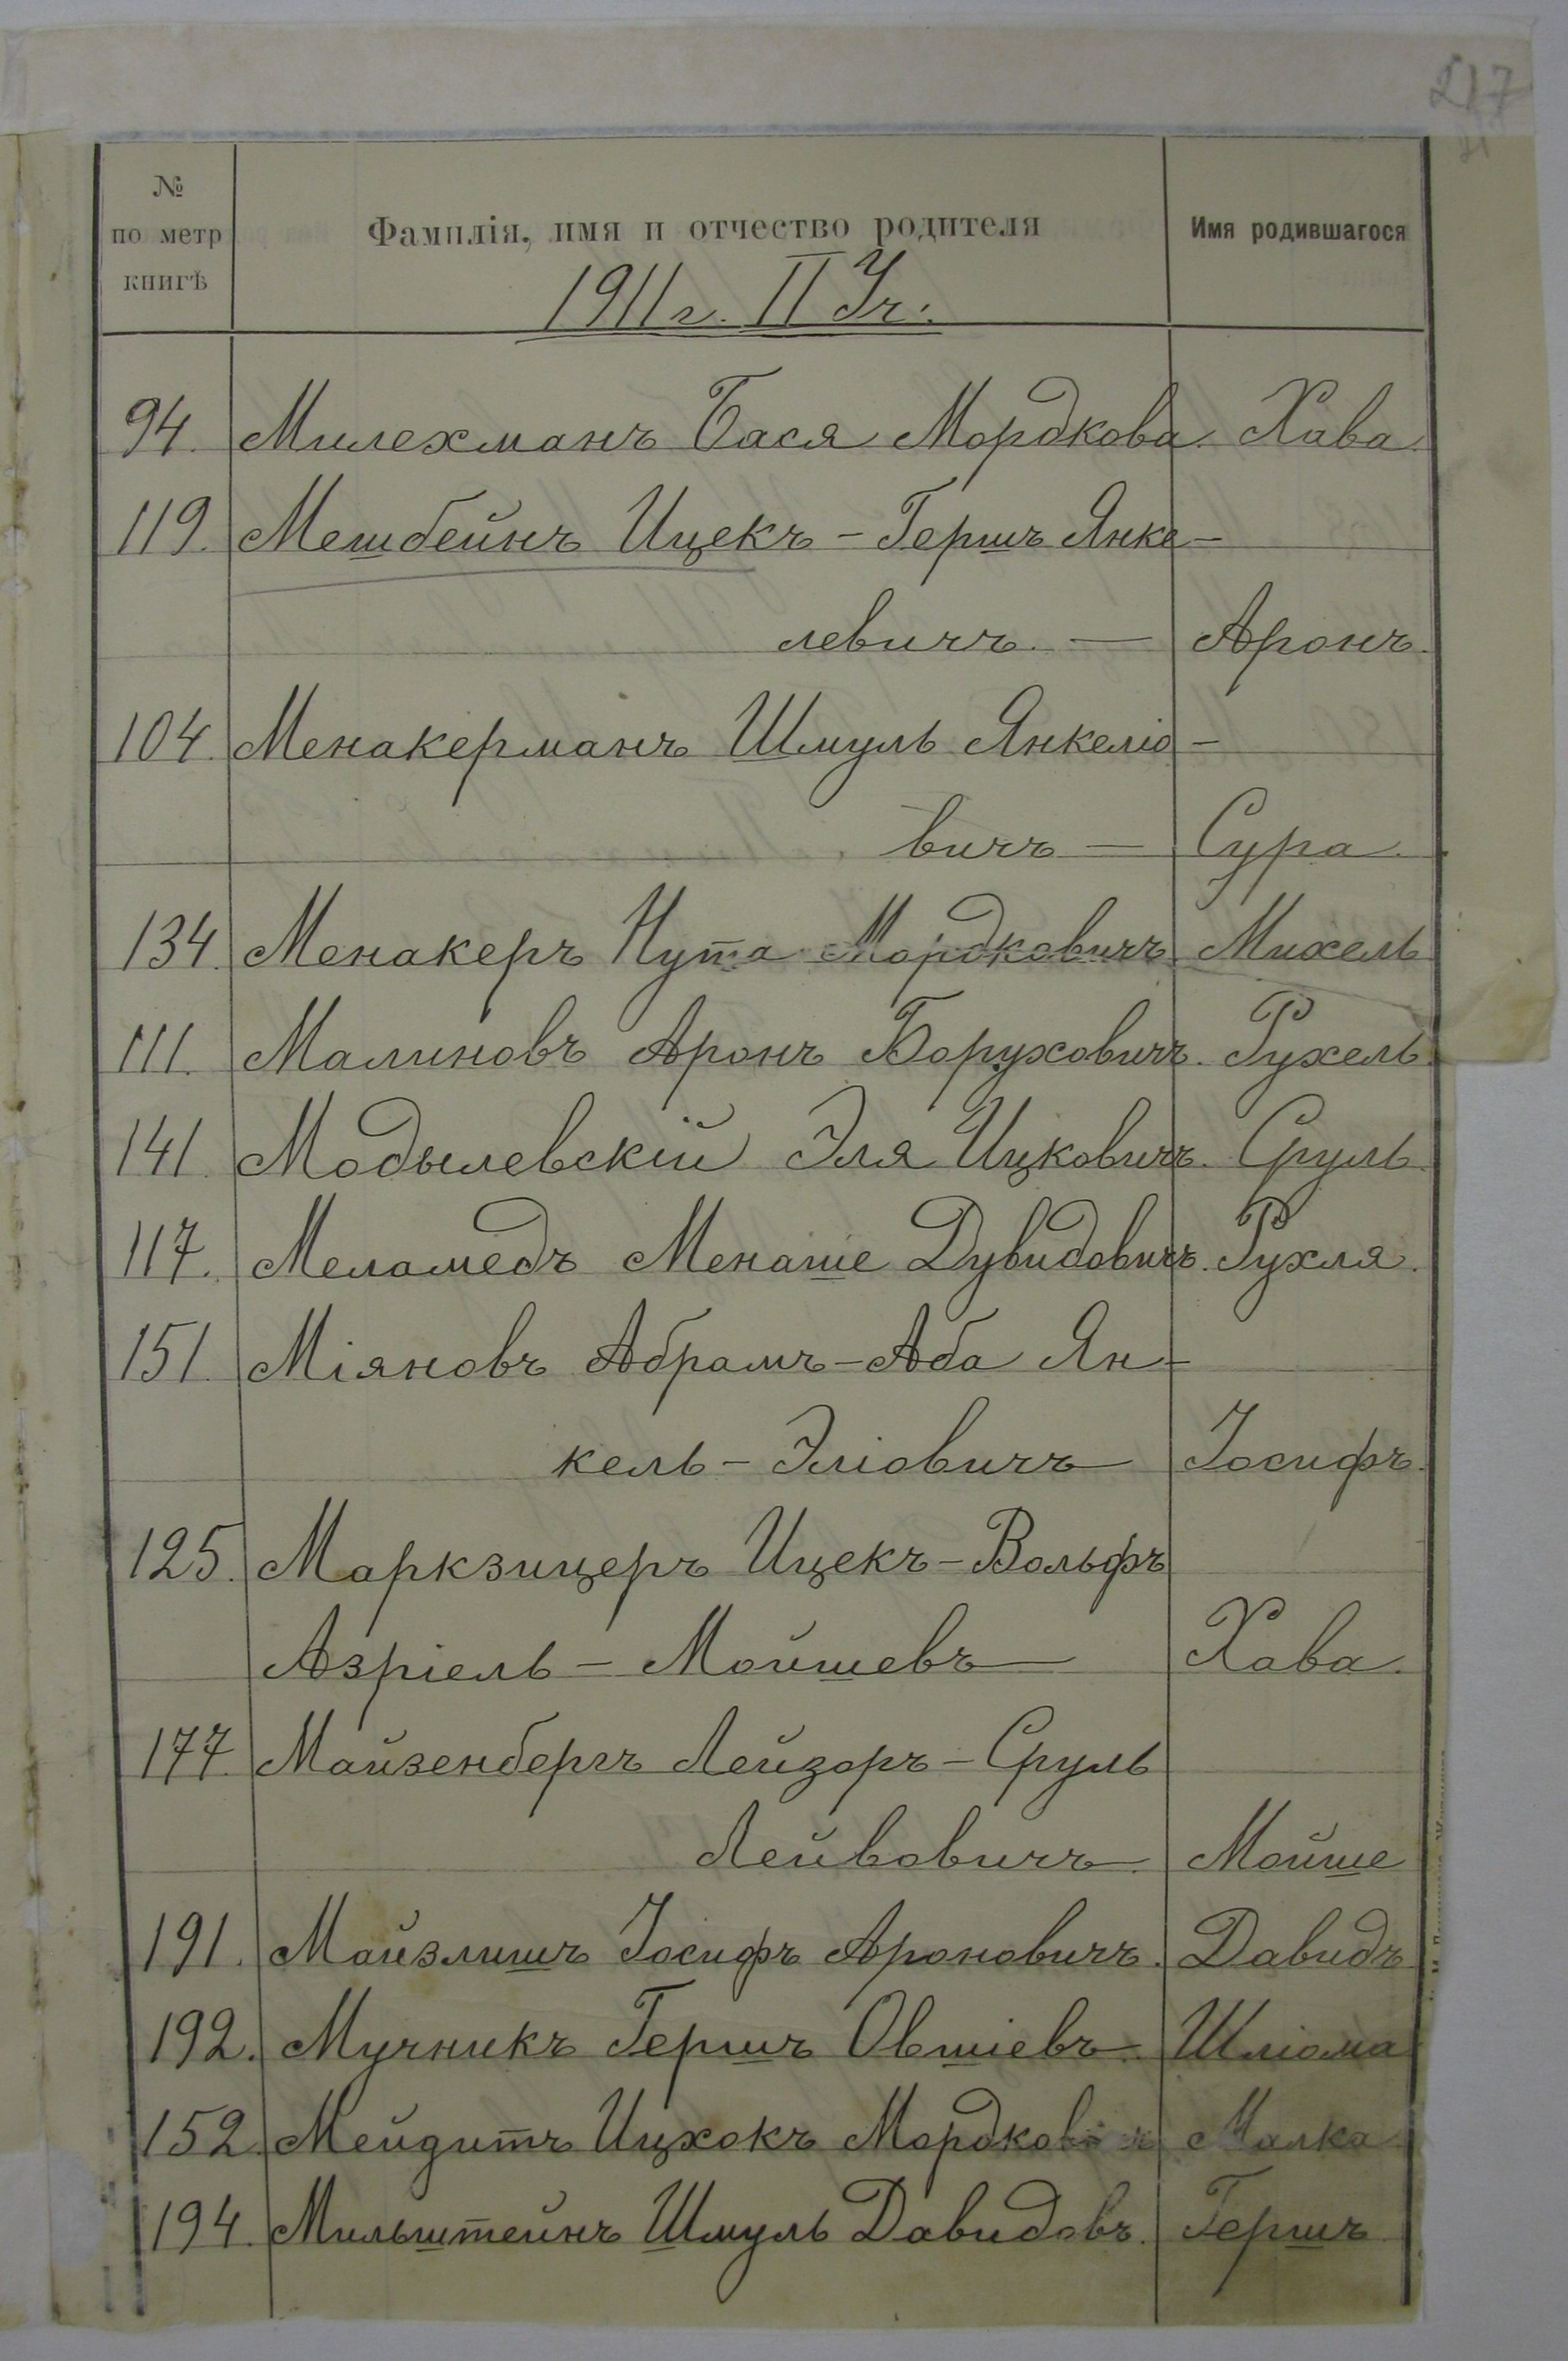 217
№ по метр книгѣ
Фамилія, имя и отчество родителя
Имя родившагося
1911 г. II Уч.
94. Милехманъ Бася Мордкова. Хава.
119. Мешбейнъ Ицекъ - Гершъ Янке-
левичъ. — Аронъ.
104. Менакерманъ Шмуль Янкеліо-
вичъ — Сура.
134. Менакеръ Нута Мордковичъ Михель
111. Малиновъ Аронъ Боруховичъ. Рухель.
141. Модылевскій Эля Ицковичъ. Сруль.
117. Меламедъ Менаше Дувидовичъ. Рухля.
151. Міяновъ Абрамъ-Аба Ян-
кель - Эліовичъ Іосифъ.
125. Маркзицеръ Ицекъ - Вольфъ
Азріель - Мойшевъ Хава.
177. Майзенбергъ Лейзоръ - Сруль
Лейвовичъ. Мойше
191. Майзлишъ Іосифъ Ароновичъ. Давидъ
192. Мучникъ Гершъ Овшіевъ. Шліома
152. Мейдитъ Ицхокъ Малка
194. Мильштейнъ Шмуль Давидовъ. Гершъ